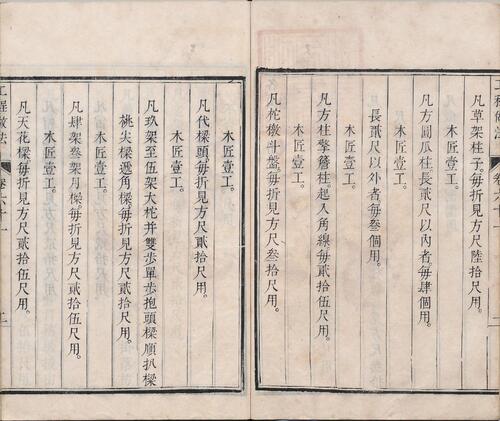 凡草架柱子。每折見方尺陸拾尺用。
木匠壹工。
凡方圓瓜柱長貳尺以內者。每肆個用。
長貳尺以外者。每叁個用。
木匠壹工。
凡方柱擎簷柱。起入角線。每貳拾伍尺用。
木匠壹工。
凡柁橔斗盤。每折見方尺叁拾尺用。
木匠壹工。
凡代樑頭。每折見方尺貳拾尺用。
木匠壹工。
凡玖架至伍架大柁并雙步單步抱頭樑順扒樑
桃尖樑遞角樑。每折見方尺貳拾伍尺用。
木匠壹工。
凡肆架叁架月樑。每折見方尺貳拾伍尺用。
木匠壹工。
凡天花樑。每折見方尺貳拾伍尺用。
工程做法 卷六十一 二